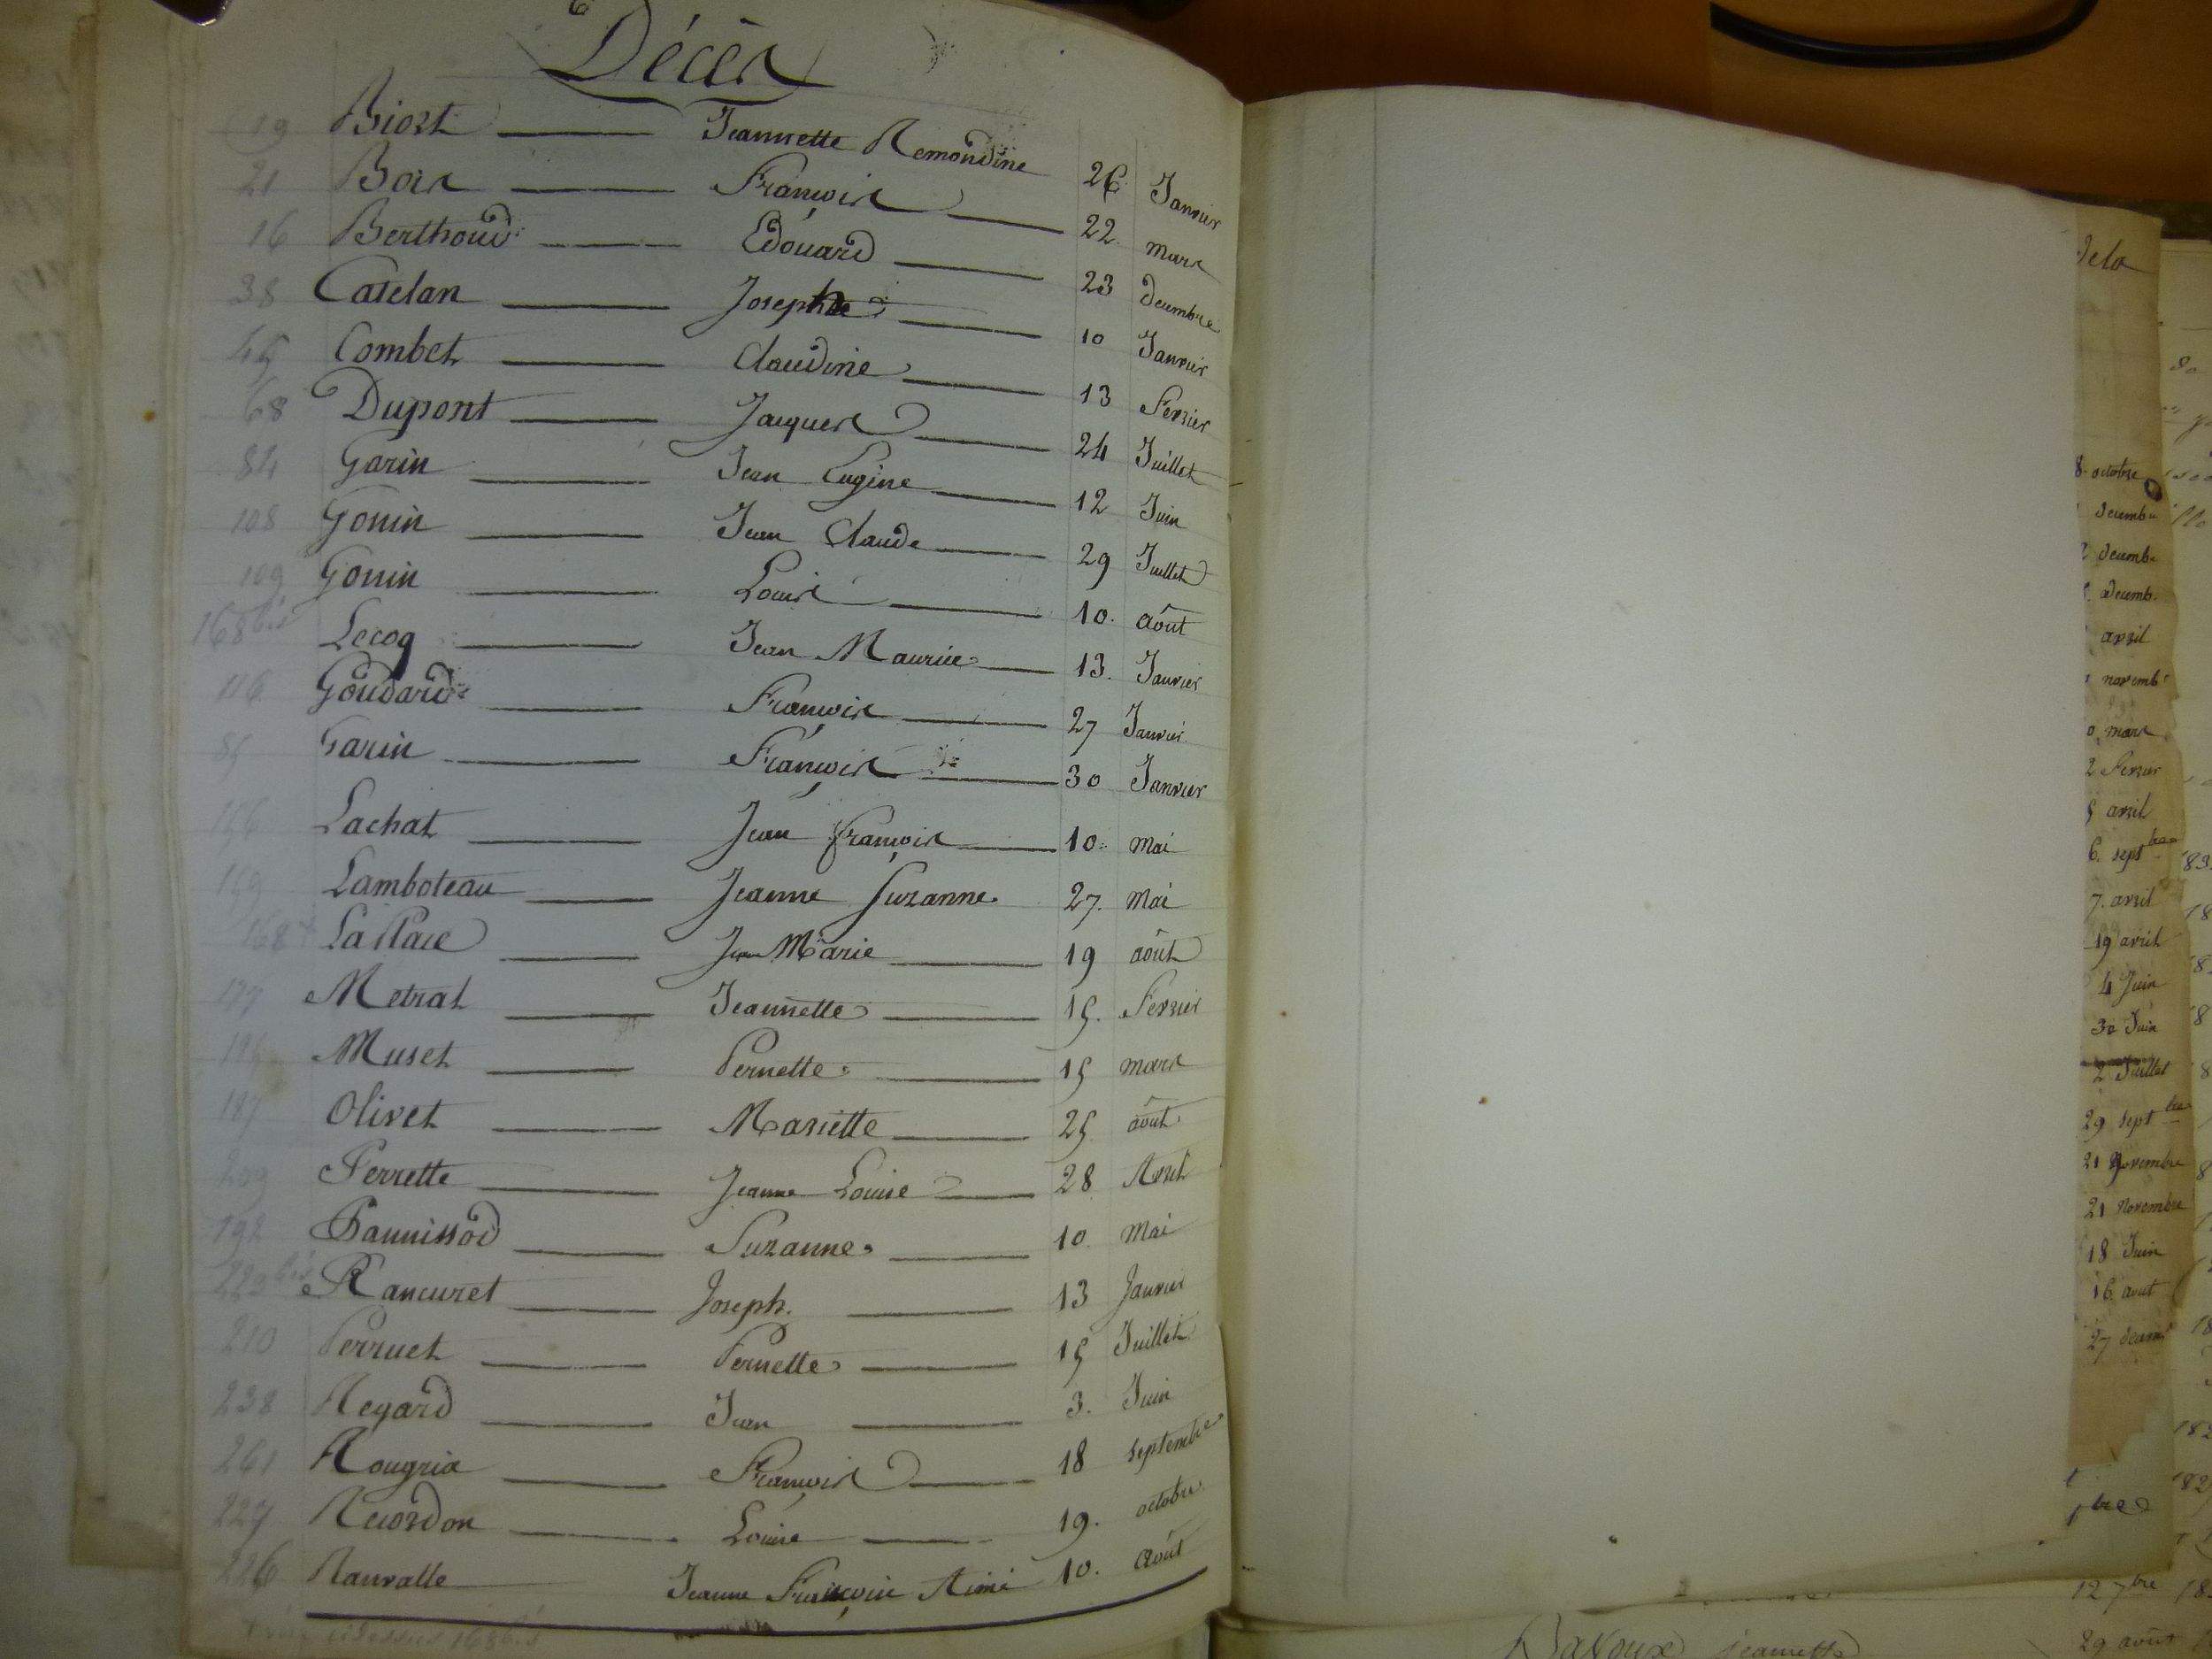 Décès
19 Biort Jeannette Remondine 26 Janvier
21 Bois François 22 mars
16 Berthoud Edouard 23 decembre
38 Catelan Joseph 10 Janvier
45 Combet Claudine 13 Fevrier
68 Dupont Jacques 24 Juillet
84 Garin Jean Eugène 12 Juin
108 Gonin Jean Claude 29 Juillet
109 Gonin Louis 10. août
168 bis Lecoq Jean Maurice 13. Janvier
116 Goudard François 27 Janvier
85 Garin François 30 Janvier
156 Lachat Jean François 10. mai
159 Lamboteau Jeanne Suzanne 27. mai
168 + LaPlace Jean Marie 19 août
177 Metral Jeannette 15. Fevrier
Muset Pernette 15 mars
187 Olivet Mariette 25 août
209 Perrette Jeanne Louise 28 Avril
192 Pannissod Suzanne 10 Mai
229 bis Rancuret Joseph. 13 Janvier
210 Perruet Pernette 15 Juillet
238 Regard Jean 3. Juin
261 Rougria François 18 septembre
227 Recordon Louise 19. octobre
226 Ranvalle Jeanne Françoise Aimé 10. août
168 bis
dela
8. octobre
decembre
decemb.
decemb.
avril
novemb.
mars
2 Fevrier
5 avril
6. sept bre
7. avril
19 avril
4 Juin
30 Juin
2 Juillet
29 sept bre
21 Novembre
21 Novembre
18 Juin
16 aout
27 decem
bre
12 7bre
Jeannette 29 août